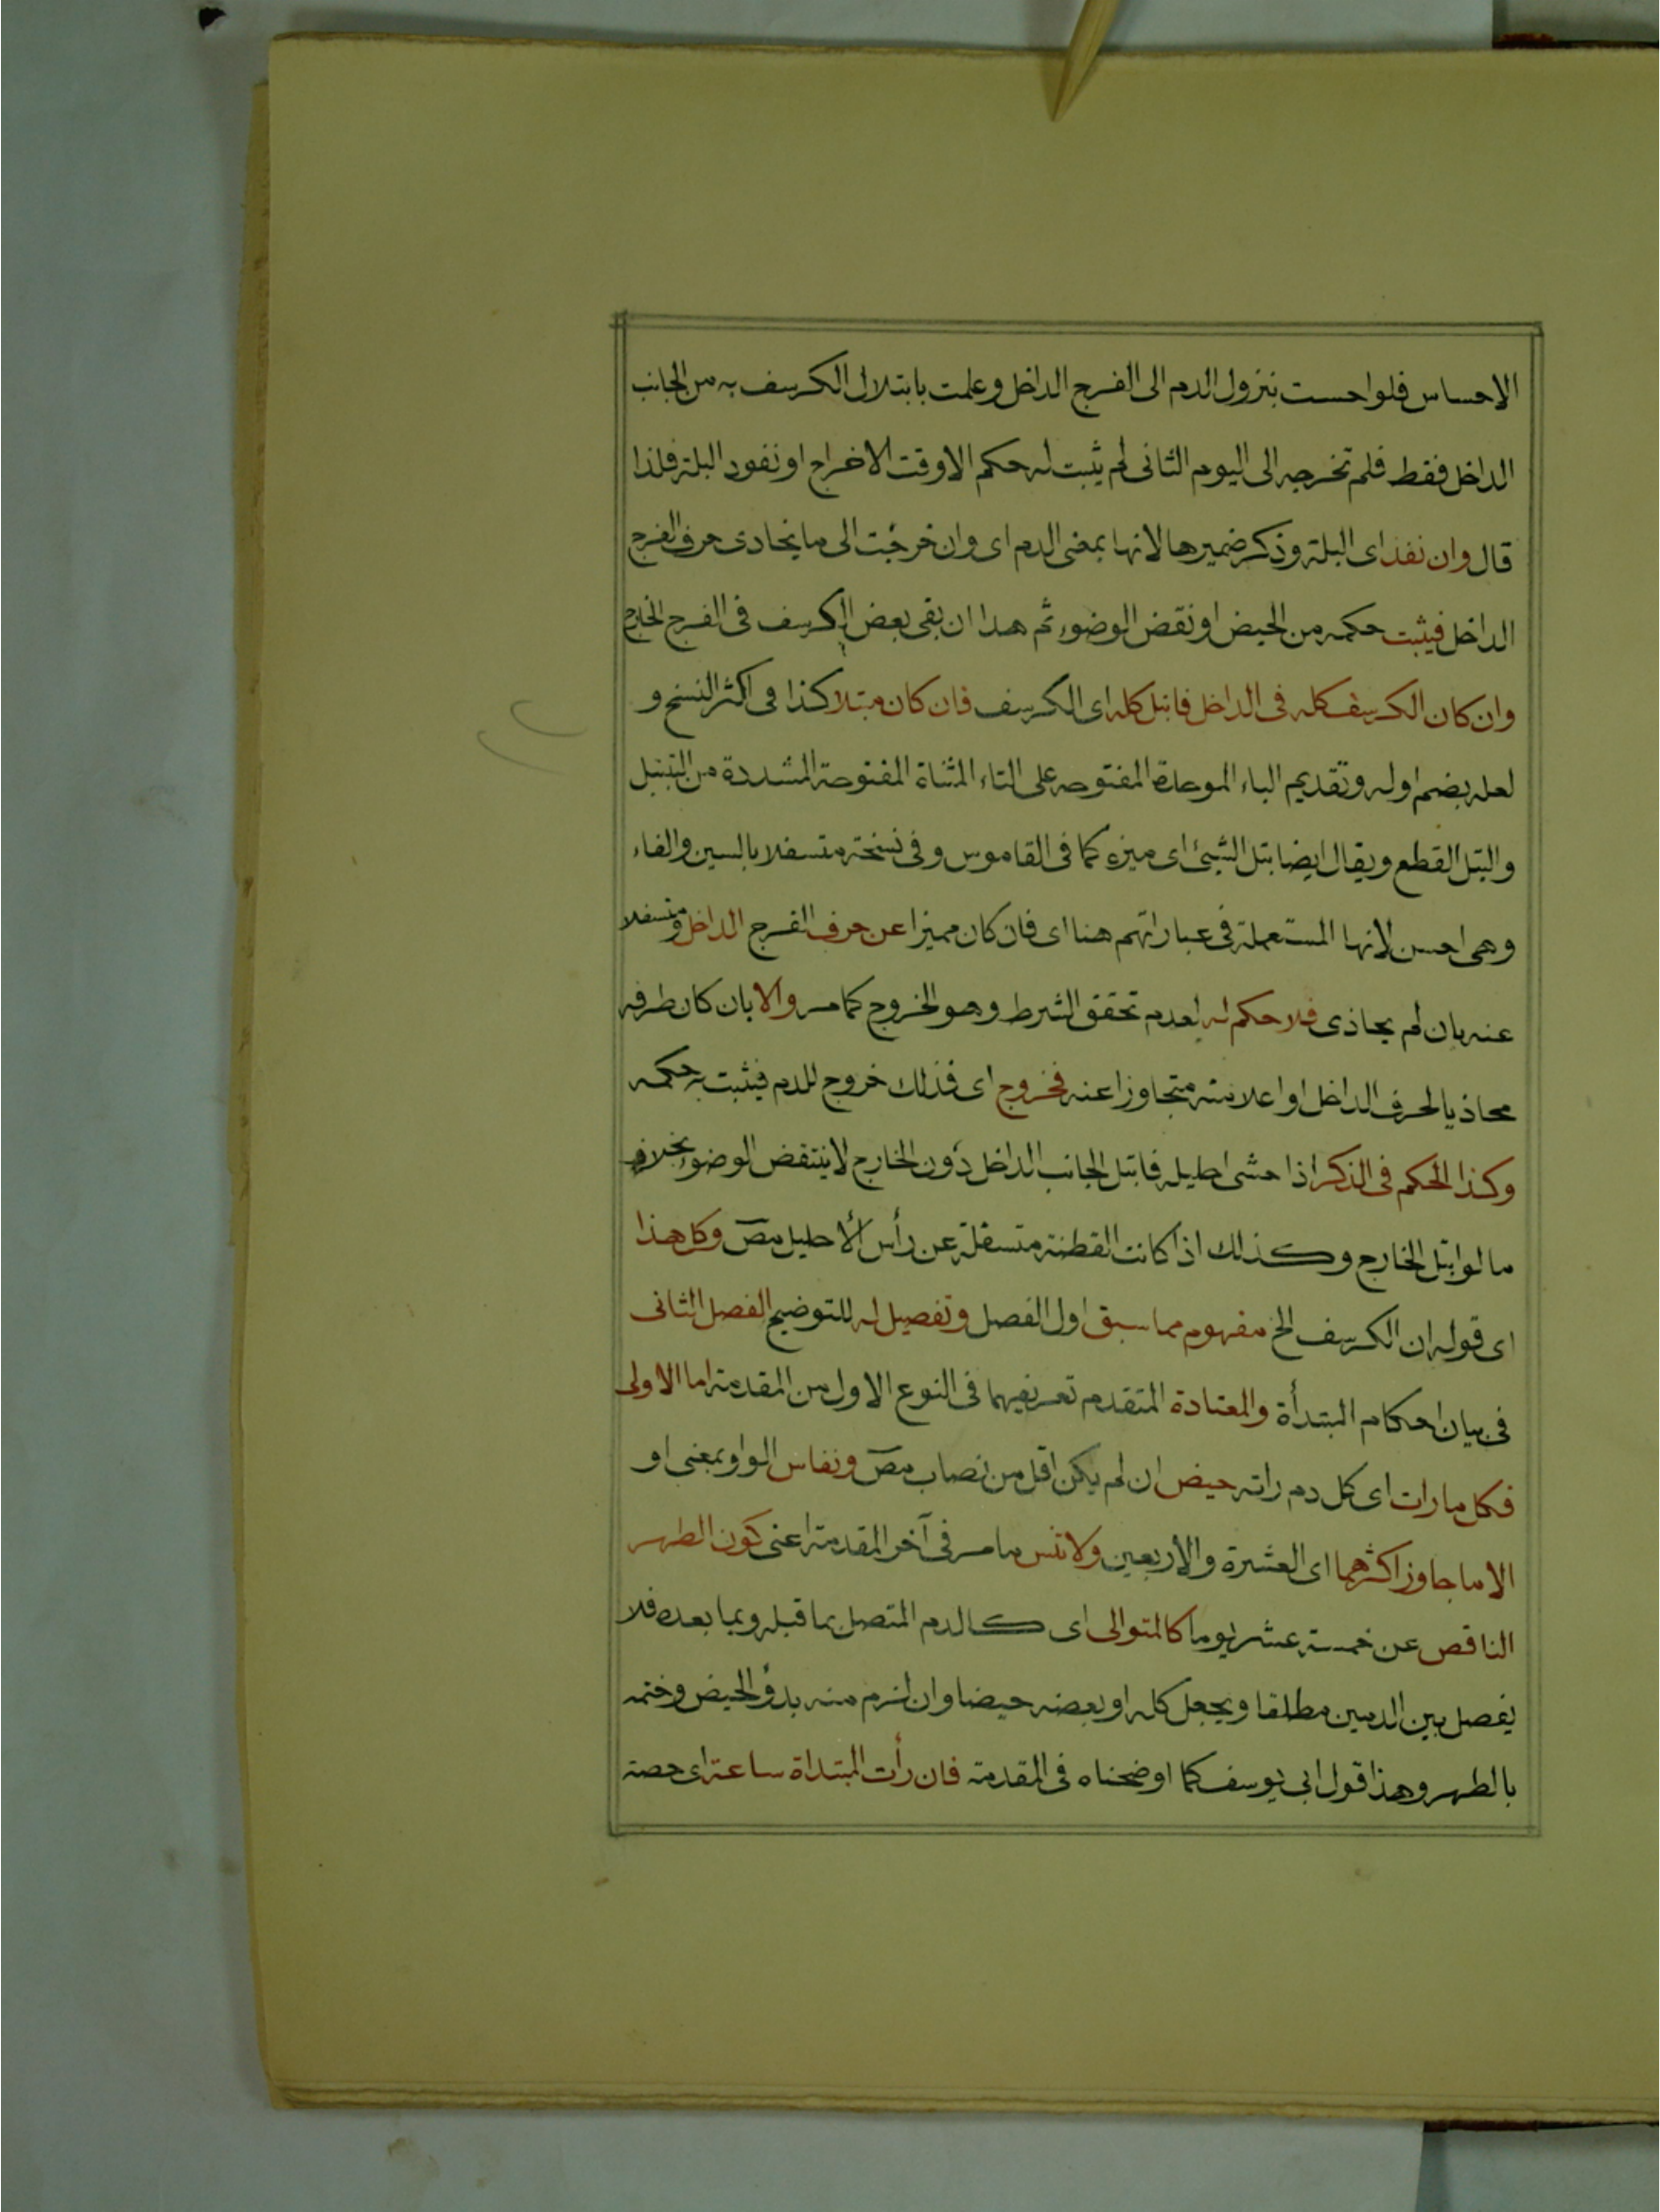 الاحساس فلو احست بنزول الدم الى الفرج الداخل وعلمت بابتلال الكرسف به من الجانب
الداخل فقط فلم تخرجه الى اليوم الثانى لم يثبت له حكم الا وقت الاخراج او نفود البلة فلذا
قال وان نفذ اى البلة وذكر ضميرها لانها بمعنى الدم اى وان خرجت الى ما يحاذى حرف الفرج
الداخل فيثبت حكمه من الحيض او نقض الوضوء ثم هذا ان بقى بعض الكرسف فى الفرج الخارج
وان كان الكرسف كله فى الداخل فابتل كله اى الكرسف فان كان مبتلا كذا فى اكثر النسخ و
لعله بضم اوله وتقديم الباء الموحدة المفتوحه على التاء المثناة المفتوحة المشددة من التبتيل
والبتل القطع ويقال ايضا بتل الشيئ اى ميزه كما فى القاموس وفى نسخة متسفلا بالسين والفاء
وهى احسن لانها المستعملة فى عباراتهم هنا اى فان كان مميزا عن حرف الفرج الداخل ومتسفلا
عنه بان لم يحاذى فلا حكم له لعدم تحقق الشرط وهو الخروج كما مر والا بان كان طرفه
محاذيا لحرف الداخل او اعلا منه متجاوزا عنه فخروج اى فذلك خروج للدم فيثبت به حكمه
وكذا الحكم فى الذكر اذا حشى احليله فابتل الجانب الداخل دون الخارج لا ينتقض الوضوء بخلاف
ما لو ابتل الخارج وكذلك اذا كانت القطنة متسفلة عن رأس الأحليل مص وكل هذا
اى قوله ان الكرسف الخ مفهوم مما سبق اول الفصل وتفصيل له للتوضيح الفصل الثانى
فى بيان احكام المبتدأة والمعتادة المتقدم تعريفهما فى النوع الاول من المقدمة اما الاولى
فكل ما رات اى كل دم راته حيض ان لم يكن اقل من نصاب مص ونفاس الواو بمعنى او
الا ما جاوز اكثرهما اى العشرة والاربعين ولا تنس ما مر فى آخر المقدمة اعنى كون الطهر
الناقص عن خمسة عشر يوما كالمتوالى اى كالدم المتصل بما قبله وبما بعده فلا
يفصل بين الدمين مطلقا ويجعل كله او بعضه حيضا وان لزم منه بدؤ الحيض وختمه
بالطهر وهذا قول ابى يوسف كما اوضحناه فى المقدمة فان رأت المبتداة ساعة اى حصة